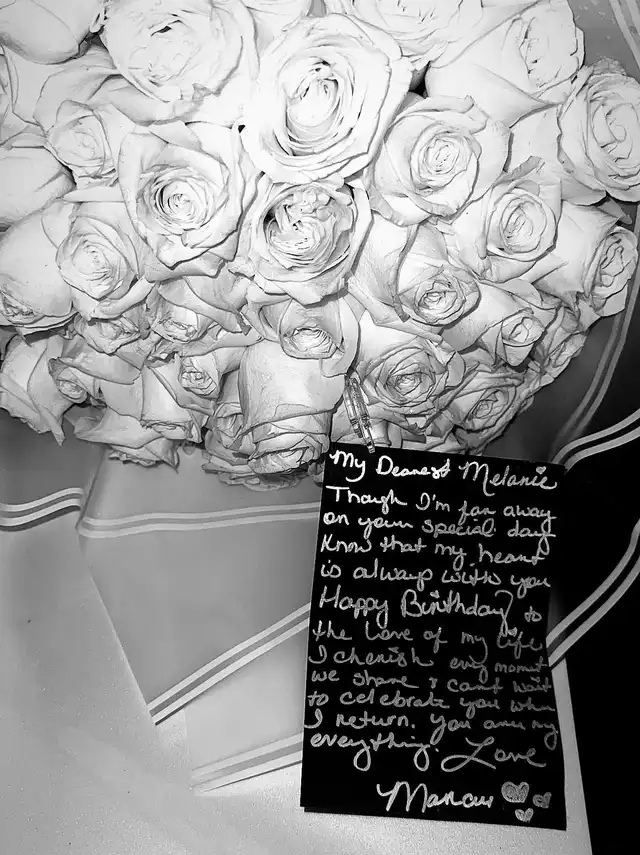 My Dearest Melanie
Though I'm far away
on your special day
Know that my heart
is always with you
Happy Birthday to
the Love of my life
I cherish every moment
we share & can't wait
to celebrate you when
I return. You are my
everything. Love
Marcus